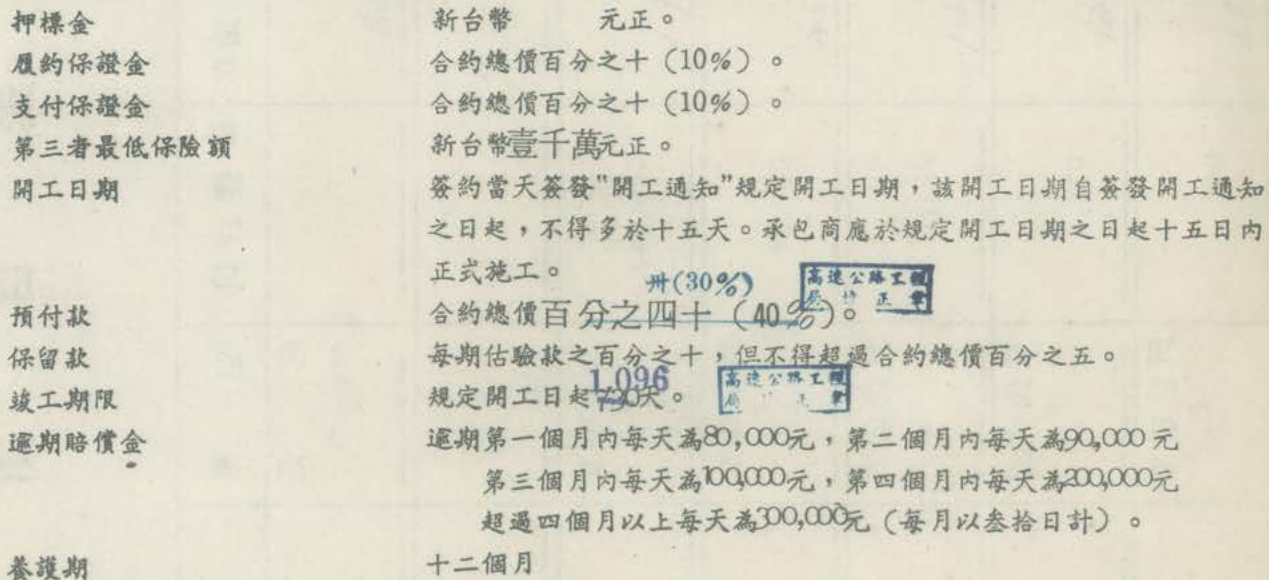 押標金 新台幣 元正。
履約保證金 合約總價百分之十（10%）。
支付保證金 合約總價百分之十（10%）。
第三者最低保險額 新台幣壹千萬元正。
開工日期 簽約當天簽發"開工通知"規定開工日期，該開工日期自簽發開工通知
之日起，不得多於十五天。承包商應於規定開工日期之日起十五日內
正式施工。
卅(30%)
高速公路工程
局 正章
預付款 合約總價百分之四十（40%）。
保留款 每期估驗款之百分之十，但不得超過合約總價百分之五。
1,096
高速公路工程
竣工期限 規定開工日起730天。
逾期賠償金 逾期第一個月內每天為80,000元，第二個月內每天為90,000元
第三個月內每天為100,000元，第四個月內每天為200,000元
超過四個月以上每天為300,000元（每月以叁拾日計）。
養護期 十二個月